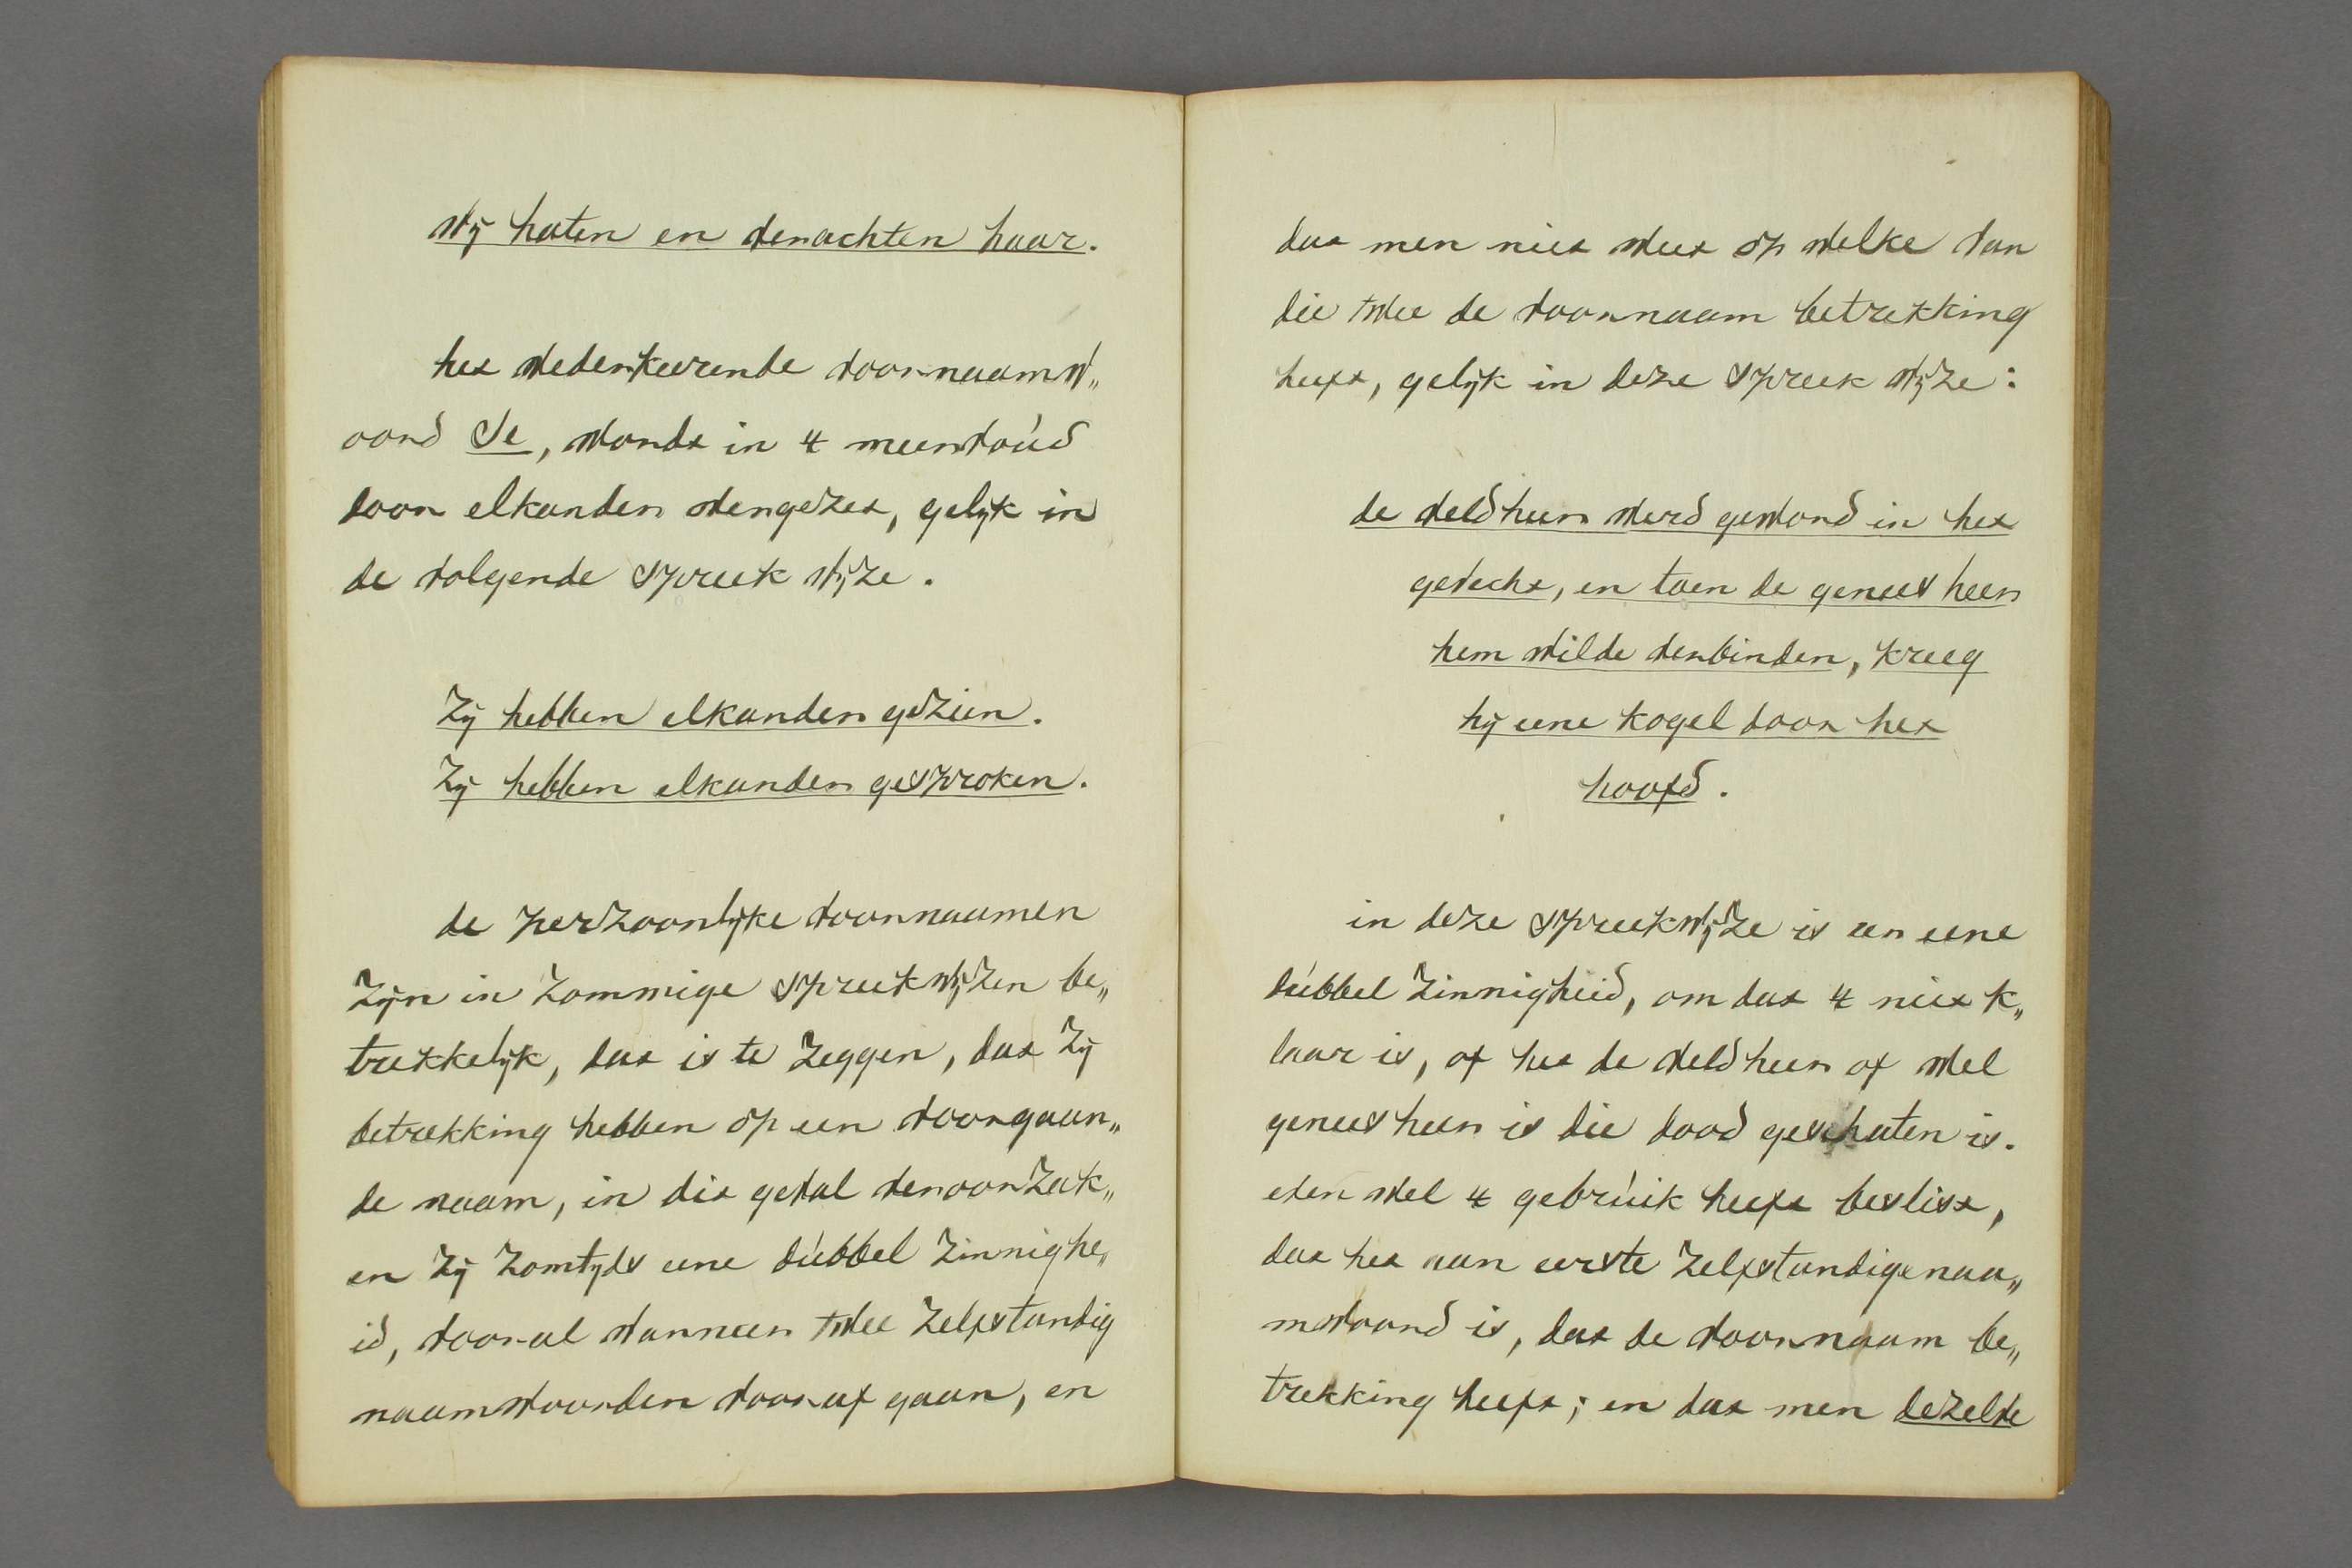 wij haten en verachten haar.
het wederkeerende voornaamw„
oord Se, wordt in 't meervoúd
door elkander vergezet, gelijk in
de volgende spreek wijze.
Zij hebben elkander gezien.
Zij hebben elkander gesproken.
de perzoonlijke voornaamen
Zijn in Zommige spreekwijzen be„
trekkelijk, dat is te Zeggen, dat Zij
betrekking hebben op een voorgaan„
de naam, in dit geval veroorzak„
en Zij Zomtyds eene dúbbel Zinnighe„
id, vooral wanneer twee Zelfstandig
naamwoorden vooraf gaan, en
dat men niet weet op welke van
die twee de voornaam betrekking
heeft, gelijk in deze spreek wijze:
de veldheer werd gewond in het
gevecht, en toen de genees heer
hem wilde verbinden, kreeg
hij eene kogel door het
hoofd.
in deze spreekwijze is een eene
dúbbel Zinnigheid, om dat 't niet k„
laar is, of het de veldheer of wel
genees heer is die dood geschoten is.
even wel 't gebrúik heeft beslist,
dat het aan eerste Zelfstandige naa„
mwoord is, dat de voornaam be„
trekking heeft; en dat men dezelve